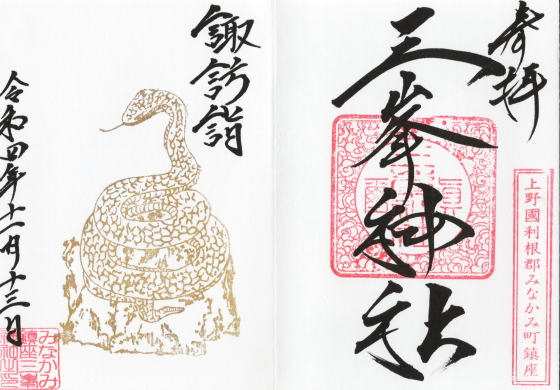 奉拝
三峯神社
上野國利根郡みなかみ町鎮座
諏訪詣
令和四年十一月十三日
みなかみ
鎮座三峯
神社之印